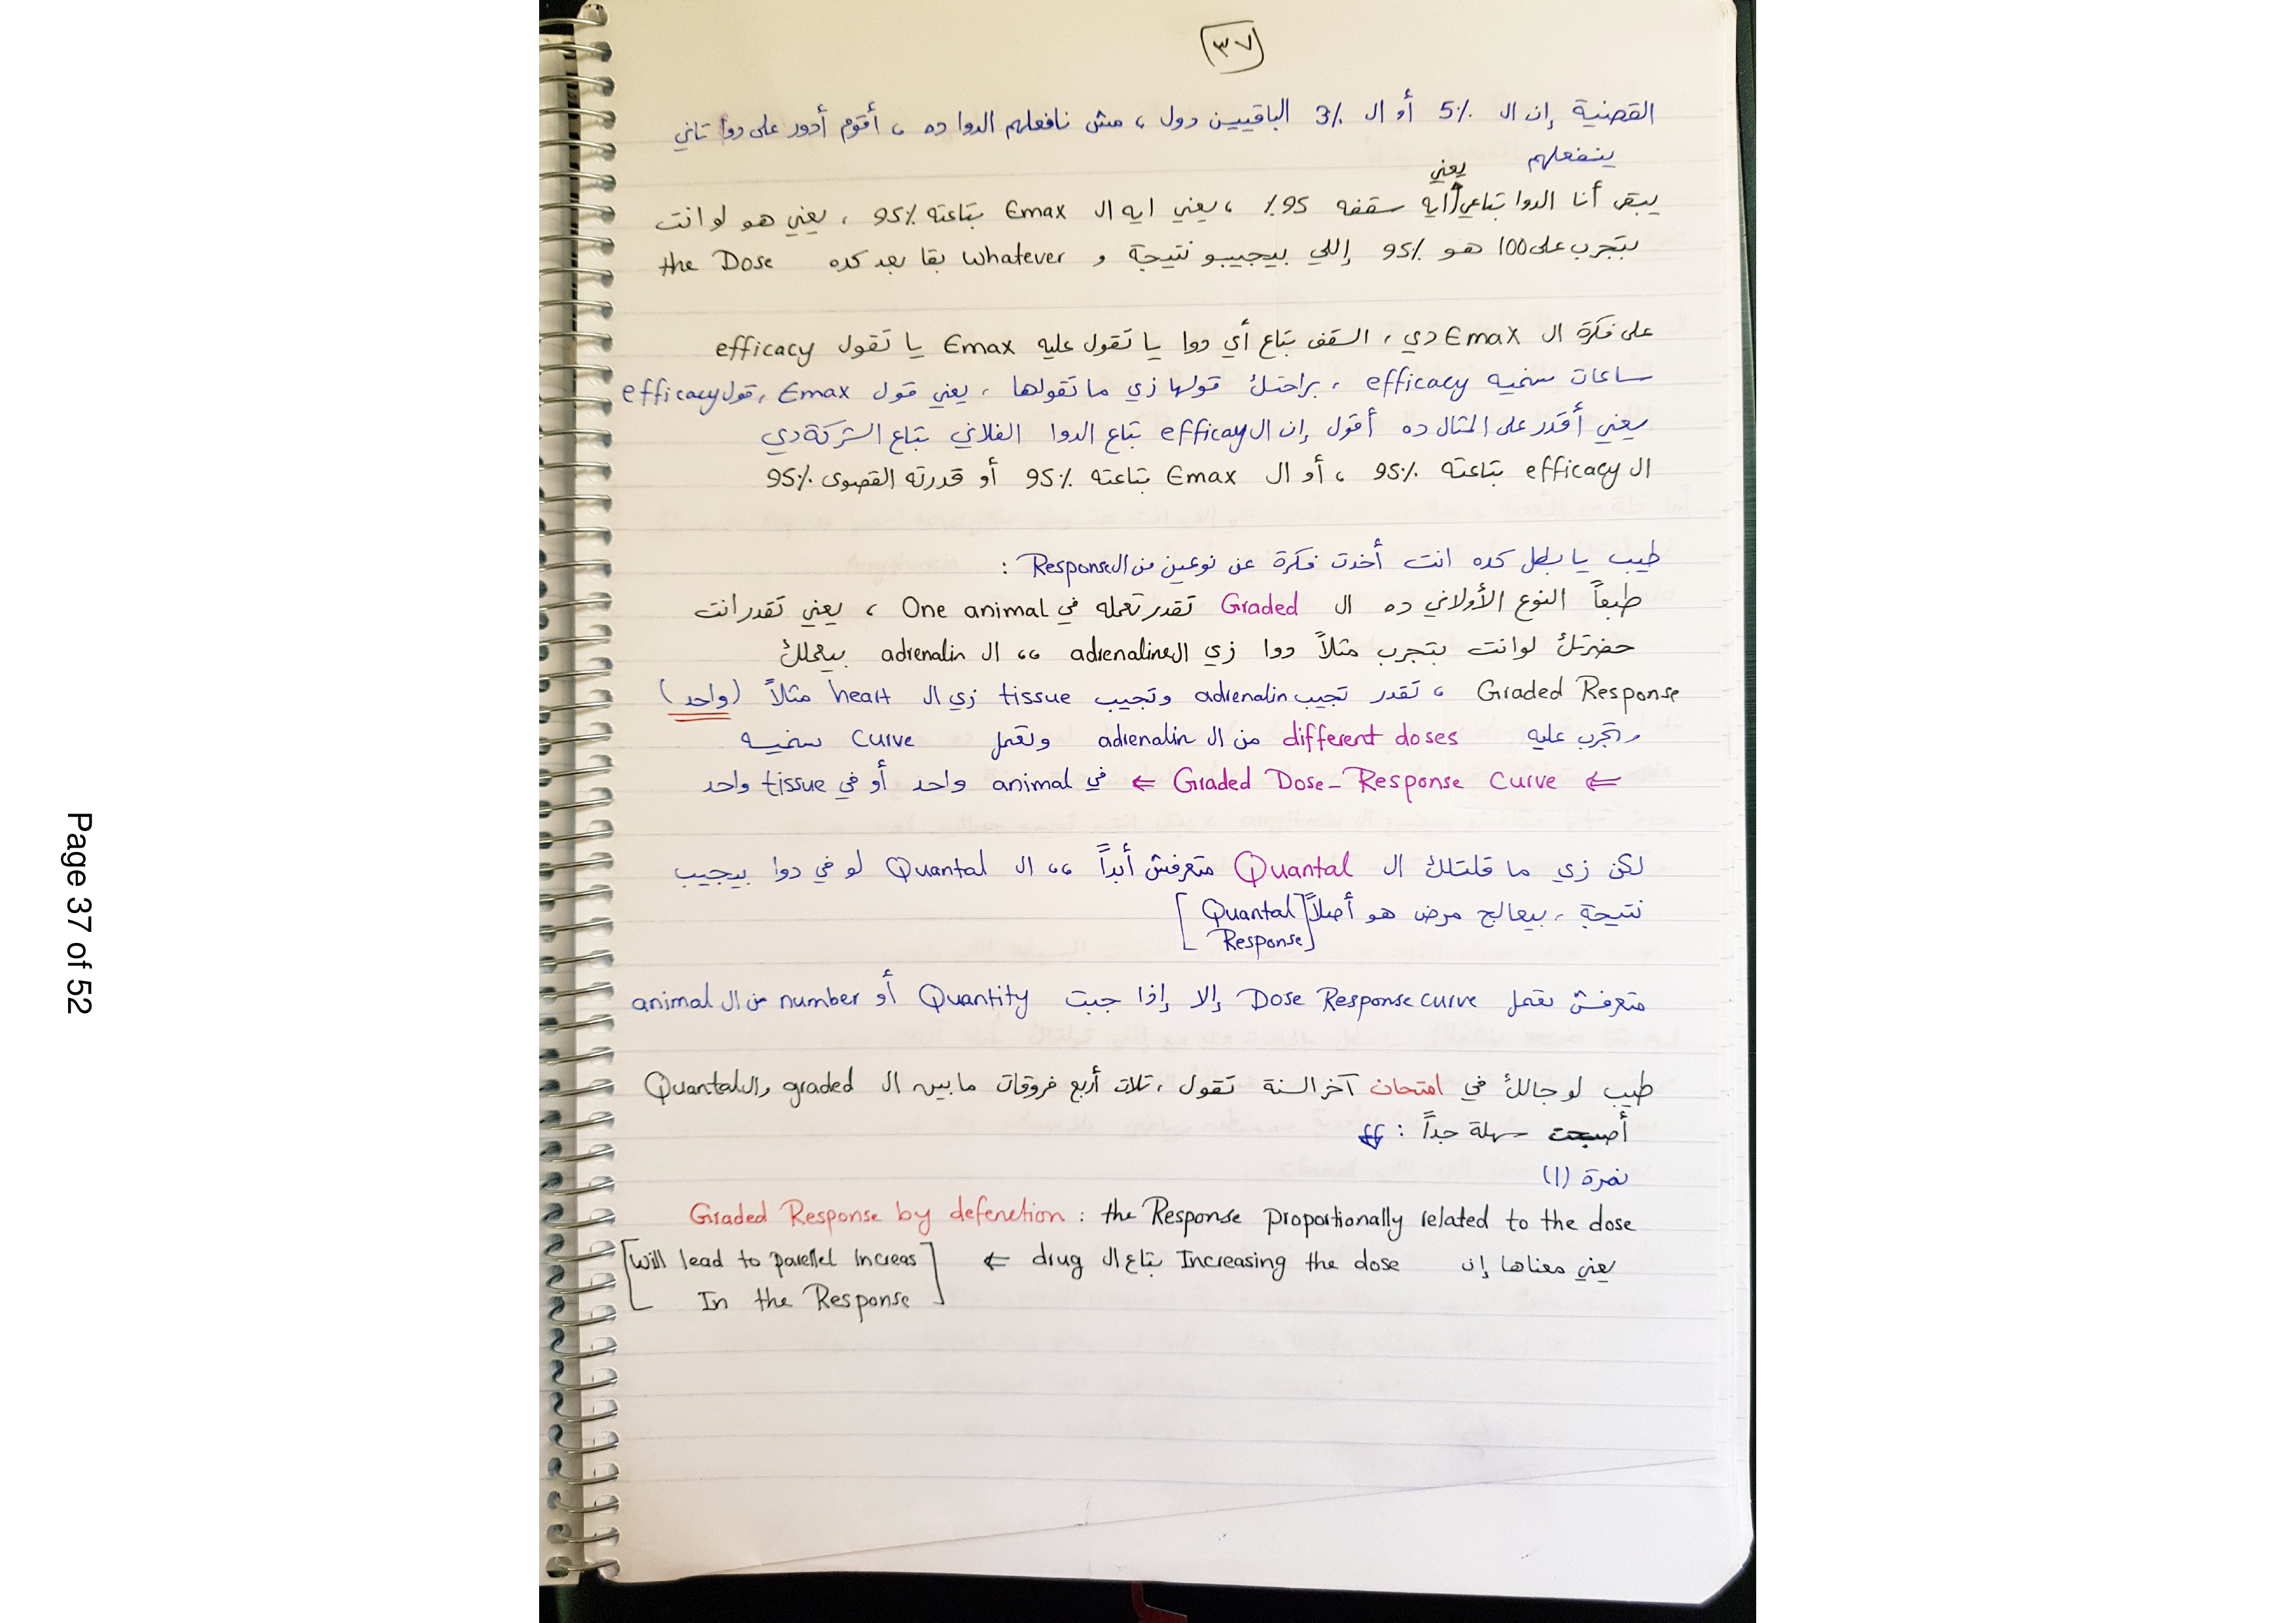 ٣٧
القضية إن ال 5% أو ال 3% الباقيين دول ، مش نافعلهم الدوا ده ، أقوم أدور على دوا تاني
ينفعلهم
يبقى أنا الدوا بتاعي يعني ايه سقفه 95% ، يعني ايه ال Emax بتاعته 95% ، يعني هو لو انت
بتجرب على 100 هو 95% إللي بيجيبو نتيجة و whatever بقا بعد كده the Dose
على فكرة ال Emax دي ، السقف بتاع أي دوا يا تقول عليه Emax يا تقول efficacy
ساعات نسميه efficacy ، براحتك قولها زي ما تقولها ، يعني قول Emax ، قول efficacy
يعني أقدر على المثال ده أقول إن ال efficay بتاع الدوا الفلاني بتاع الشركة دي
ال efficacy بتاعته 95% ، أو ال Emax بتاعته 95% أو قدرته القصوى 95%
طيب يا بطل كده انت أخدت فكرة عن نوعين من ال Response :
طبعاً النوع الأولاني ده ال Graded تقدر تعمله في One animal ، يعني تقدر انت
حضرتك لو انت بتجرب مثلاً دوا زي ال adrenaline ،، ال adrenalin بيعملك
Graded Response ، تقدر تجيب adrenalin وتجيب tissue زي ال heart مثلاً (واحد)
وتجرب عليه different doses من ال adrenalin وتعمل curve نسميه
⇐ Graded Dose_Response Curve ⇐ في animal واحد أو في tissue واحد
لكن زي ما قلتلك ال Quantal متعرفش أبداً ،، ال Quantal لو في دوا بيجيب
نتيجة ، بيعالج مرض هو أصلاً [Quantal
Response]
متعرفش تعمل Dose Response curve إلا إذا جبت Quantity أو number من ال animal
طيب لو جالك في امتحان آخر السنة تقول ، تلات أربع فروقات ما بين ال graded وال Quantal
أصبحت سهلة جداً :
نمرة (1)
Graded Response by defenetion : the Response proportionally related to the dose
يعني معناها إن Increasing the dose بتاع ال drug ⇐ [Will lead to parellel increas
In the Response]
Page 37 of 52